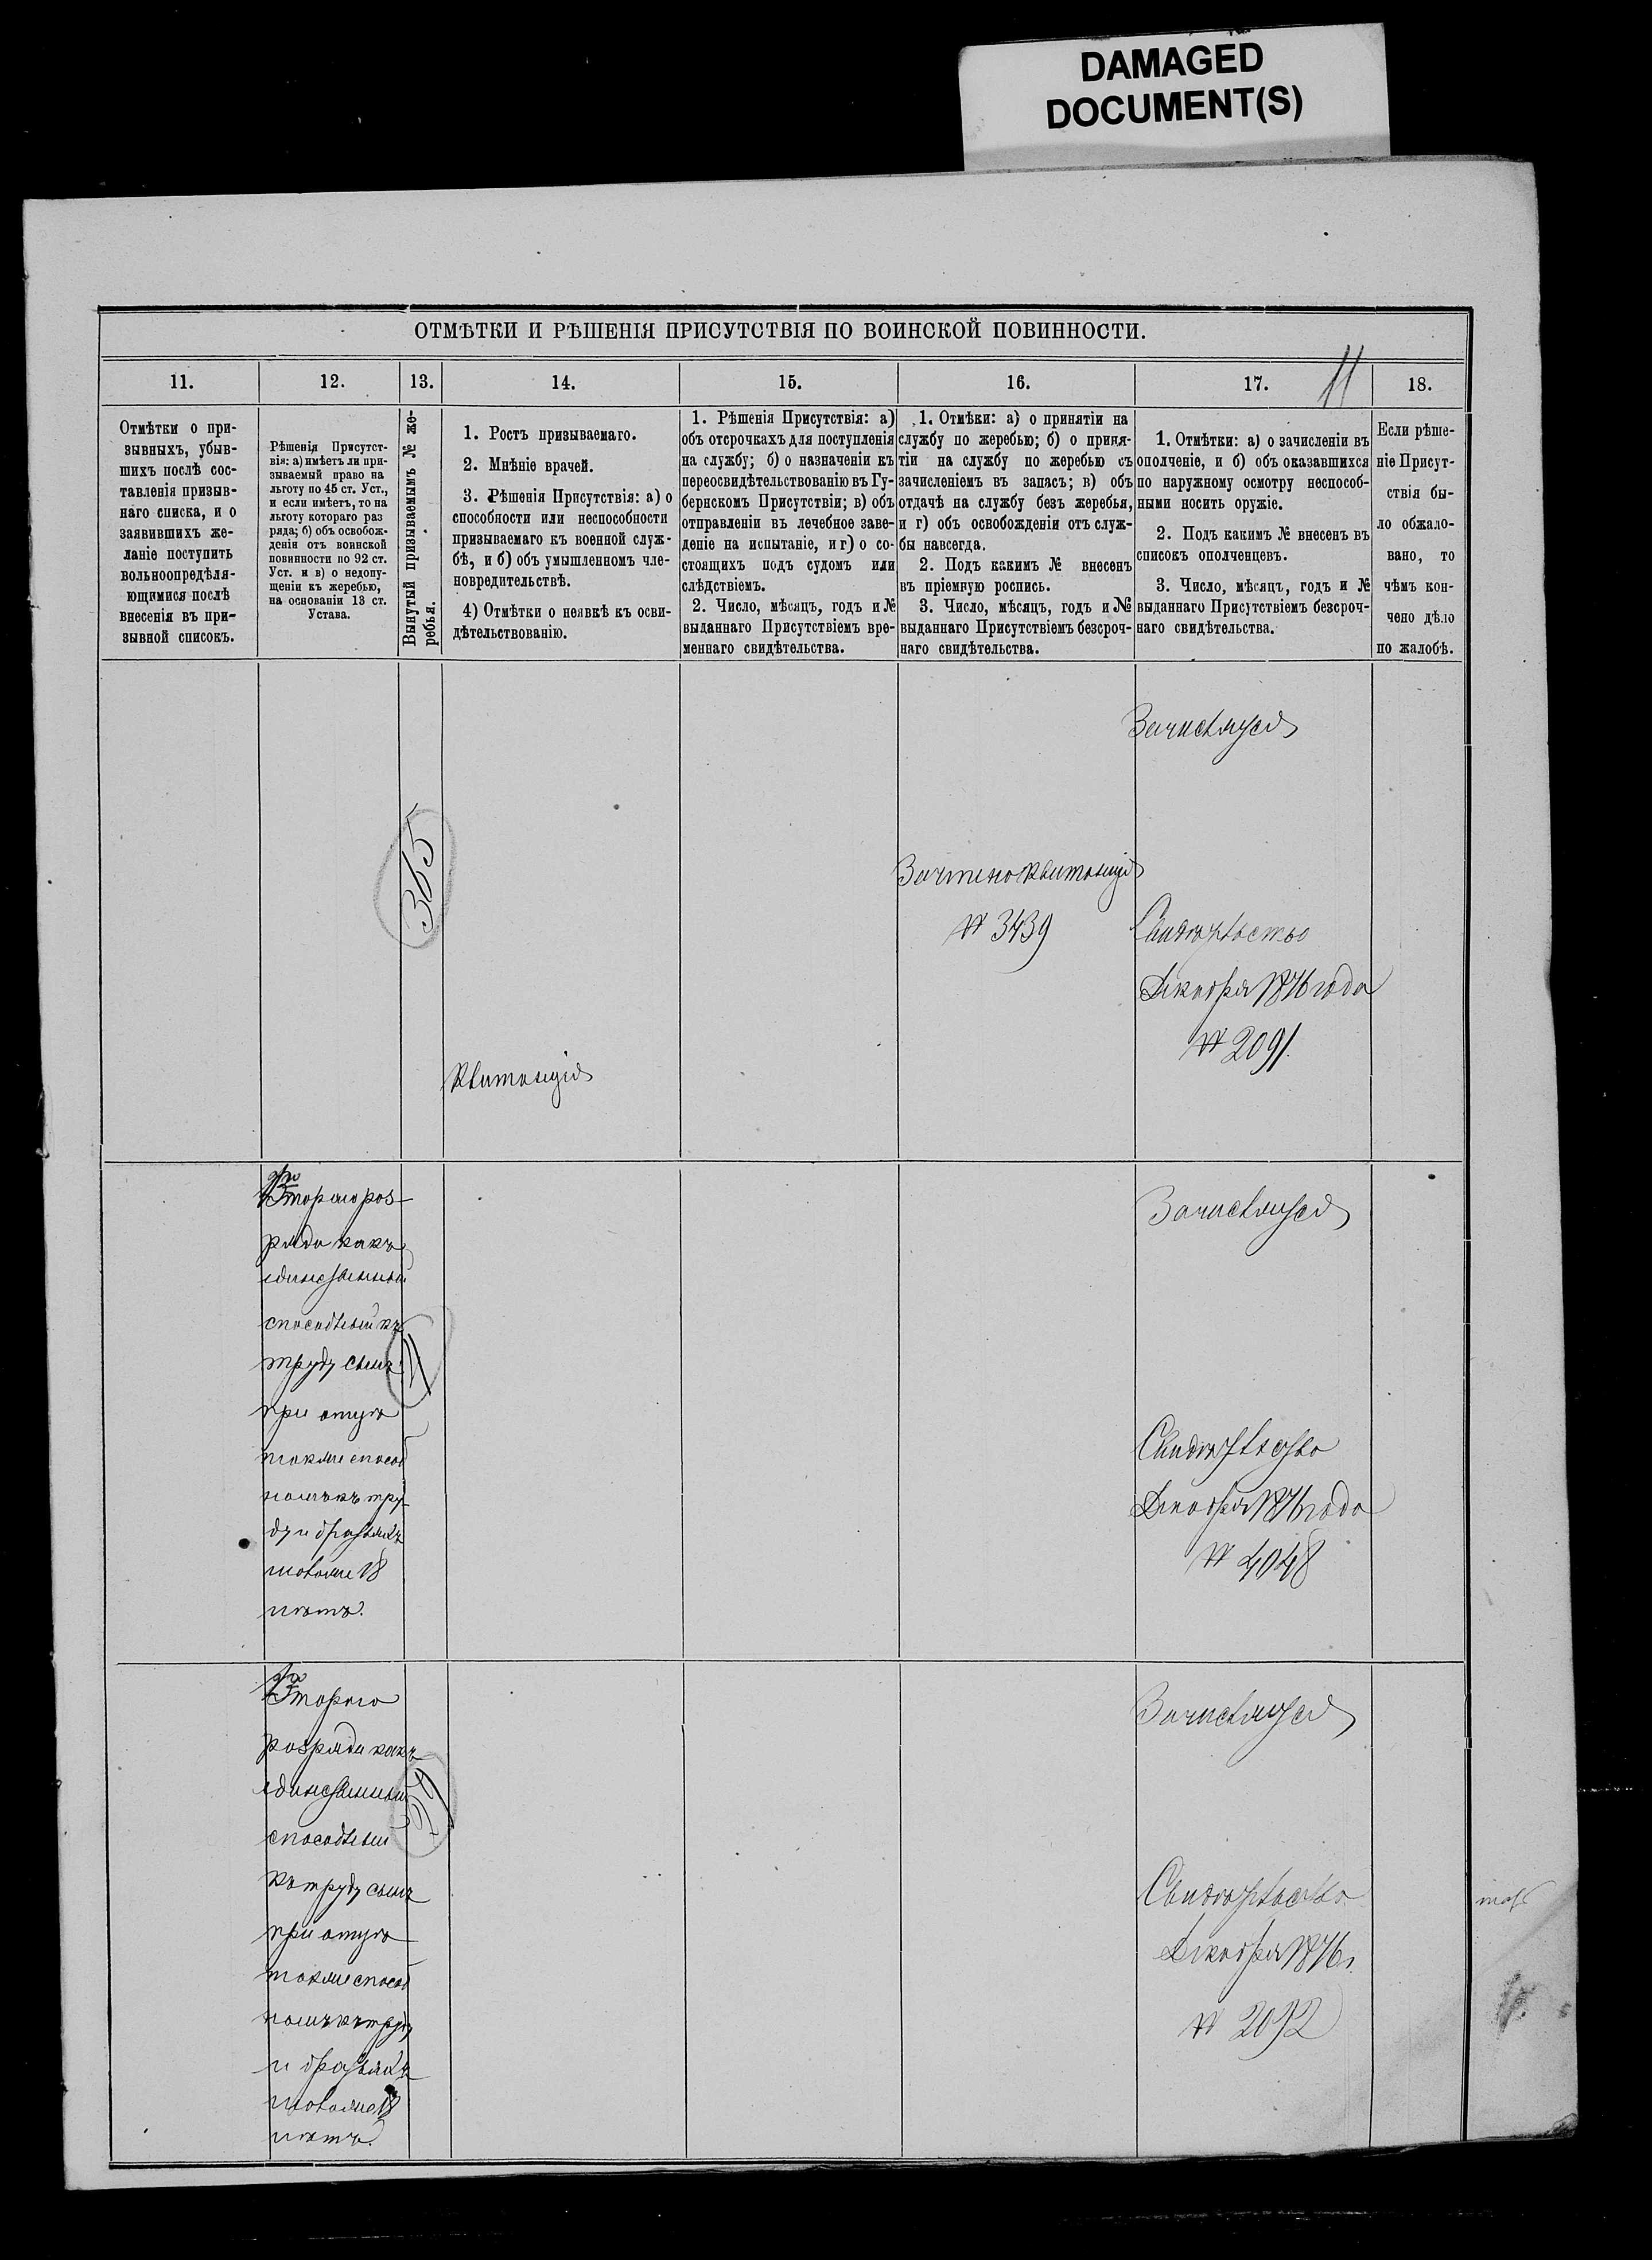 DAMAGED
DOCUMENT(S)
ОТМѢТКИ И РѢШЕНІЯ ПРИСУТСТВІЯ ПО ВОИНСКОЙ ПОВИННОСТИ.
11.
12.
13.
14.
15.
16.
17.
11
18.
Отмѣтки о при-
зывныхъ, убыв-
шихъ послѣ сос-
тавленія призыв-
наго списка, и о
заявившихъ же-
ланіе поступить
вольноопредѣля-
ющимися послѣ
внесенія въ при-
зывной списокъ.
Рѣшенія Присутст-
вія: а) имѣетъ ли при-
зываемый право на
льготу по 45 ст. Уст.,
и если имѣетъ, то на
льготу котораго раз
ряда; б) объ освобож-
деніи отъ воинской
повинности по 92 ст.
Уст. и в) о недопу-
щеніи къ жеребью,
на основаніи 13 ст.
Устава.
Вынутый призываемымъ № же-
ребья.
1. Ростъ призываемаго.
2. Мнѣніе врачей.
3. Рѣшенія Присутствія: а) о
способности или неспособности
призываемаго къ военной служ-
бѣ, и б) объ умышленномъ чле-
новредительствѣ.
4) Отмѣтки о неявкѣ къ осви-
дѣтельствованію.
1. Рѣшенія Присутствія: а)
объ отсрочкахъ для поступленія
на службу; б) о назначеніи къ
переосвидѣтельствованію въ Гу-
бернскомъ Присутствіи; в) объ
отправленіи въ лечебное заве-
деніе на испытаніе, и г) о со-
стоящихъ подъ судомъ или
слѣдствіемъ.
2. Число, мѣсяцъ, годъ и №
выданнаго Присутствіемъ вре-
меннаго свидѣтельства.
1. Отмѣки: а) о принятіи на
службу по жеребью; б) о приня-
тіи на службу по жеребью съ
зачисленіемъ въ запасъ; в) объ
отдачѣ на службу безъ жеребья,
и г) объ освобожденіи отъ служ-
бы навсегда.
2. Подъ какимъ № внесенъ
въ пріемную роспись.
3. Число, мѣсяцъ, годъ и №
выданнаго Присутствіемъ безсроч-
наго свидѣтельства.
1. Отмѣтки: а) о зачисленіи въ
ополченіе, и б) объ оказавшихся
по наружному осмотру неспособ-
ными носить оружіе.
2. Подъ какимъ № внесенъ въ
списокъ ополченцевъ.
3. Число, мѣсяцъ, годъ и №
выданнаго Присутствіемъ безсроч-
наго свидѣтельства.
Если рѣше-
ніе Присут-
ствія бы-
ло обжало-
вано, то
чѣмъ кон-
чено дѣло
по жалобѣ.
Зачисляется
365
Зачтено квитанція
№ 3439
Свидѣтельство
Декабря 1876 года
№ 2091.
Квитанція
Втораго раз-
ряда какъ
единственный
способный къ
труду сынъ
при отцѣ
также способ
номъ къ тру-
ду и братьяхъ
моложе 18
лѣтъ.
11
Зачисляется
Свидѣтельство
Декабря 1876 года
№ 4048
Втораго
разряда какъ
единственный
способный
къ труду сынъ
при отцѣ
также способ
номъ къ труду
и братьяхъ
моложе 18
лѣтъ.
Зачисляется
Свидѣтельство
Декабря 1876 г.
№ 2092